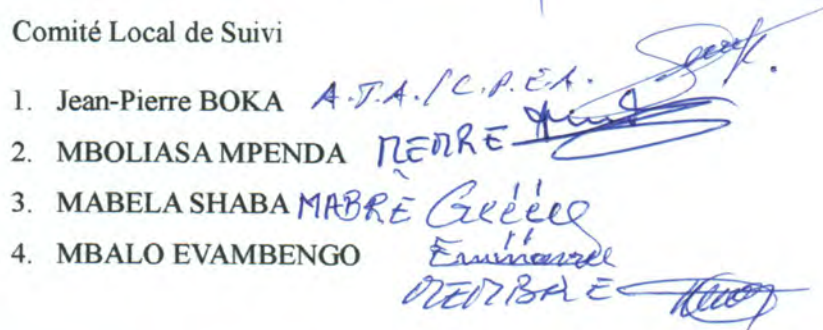 Comité Local de Suivi
1. Jean-Pierre BOKA A.T.A./C.P.E.A.
2. MBOLIASA MPENDA MEMRE
3. MABELA SHABA MABRE
4. MBALO EVAMBENGO
MEMBRE